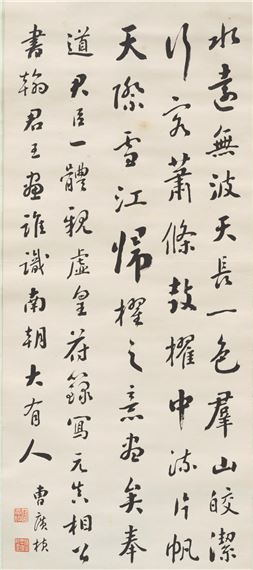 水遠無波天長一色羣山皎潔
行客蕭條鼓櫂中流片帆
天際雪江歸櫂之意盡矣奉
道君臣一體親虛皇符籙寫元真相公
書翰君王畫誰識南朝大有人
曹廣楨